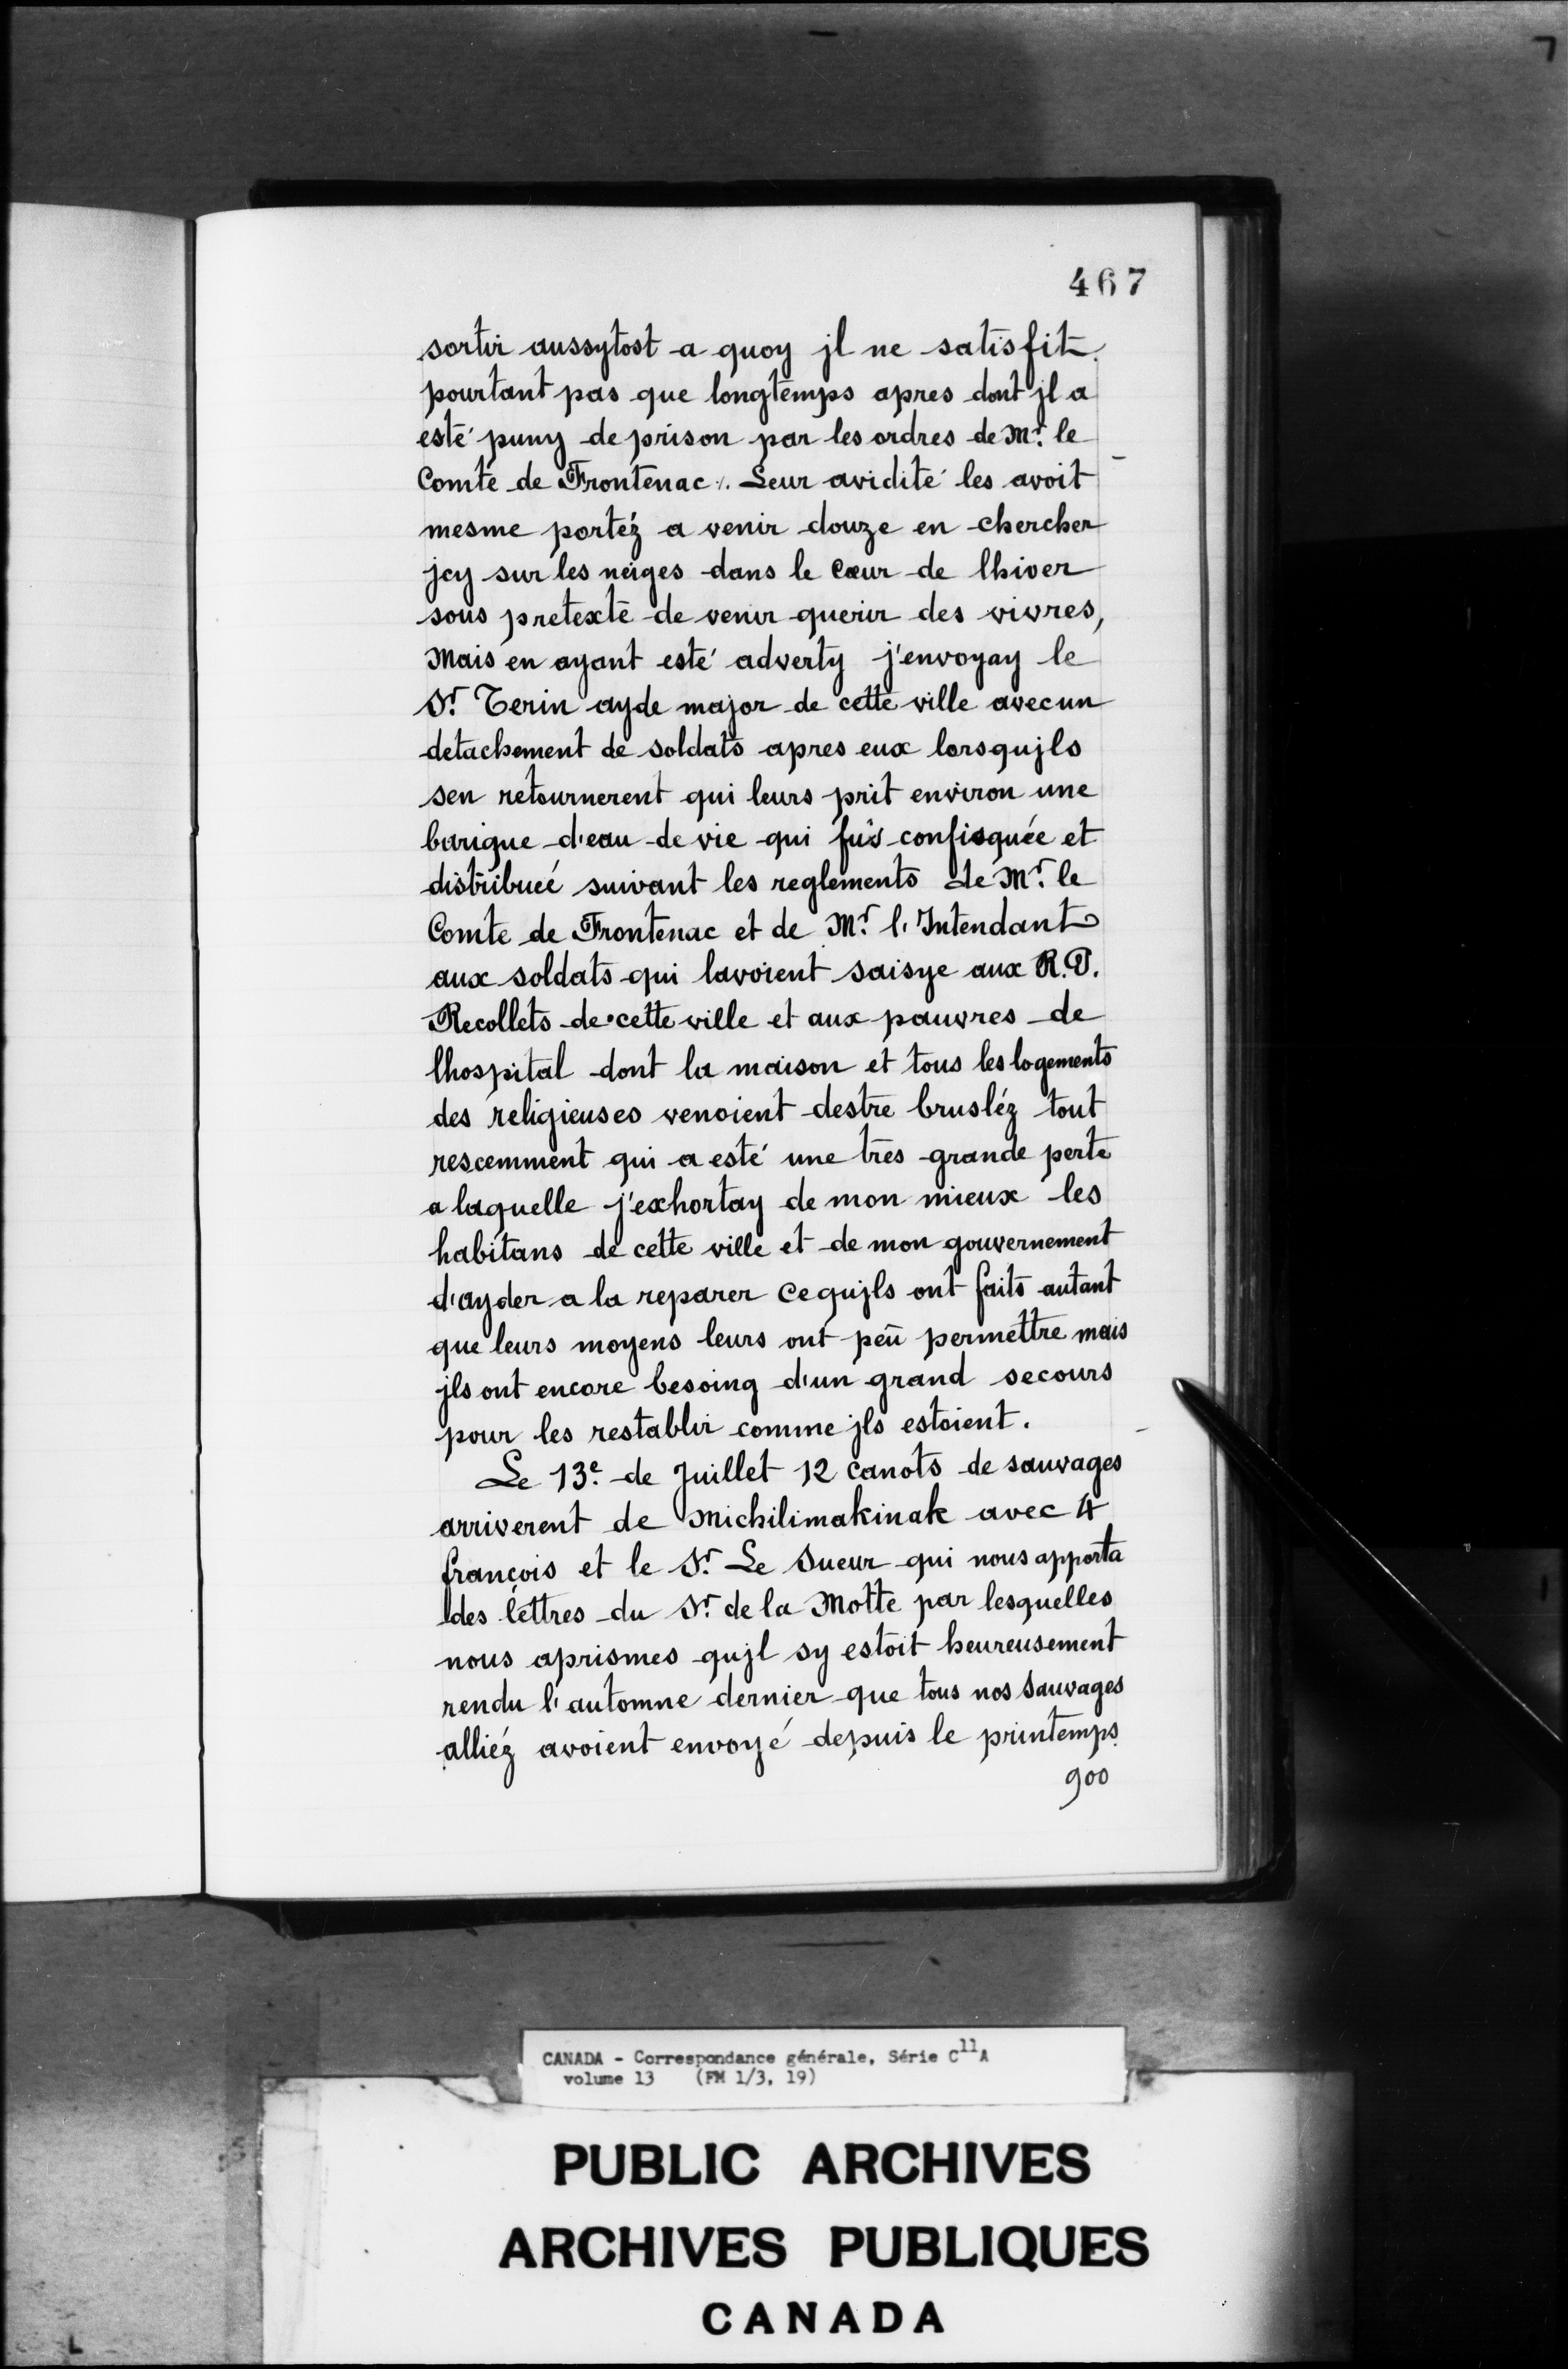 467
sortir aussytost a quoy jl ne satisfit
pourtant pas que longtemps apres dont jl a
esté puny de prison par les ordres de Mr. le
Comte de Frontenac /. Leur avidité les avoit
mesme portéz a venir douze en chercher
jcy sur les neiges dans le Cœur de lhiver
sous pretexte de venir querir des vivres,
Mais en ayant esté adverty j'envoyay le
Sr. Terin ayde major de cette ville avec un
detachement de soldats apres eux lorsqujls
sen retournerent qui leurs prit environ une
barique d'eau de vie qui confisquée et
distribueé suivant les reglements de Mr. le
Comte de Frontenac et de Mr. l'Intendant
aux soldats qui lavoient saisye aux R.P.
Recollets de cette ville et aux pauvres de
lhospital dont la maison et tous les logements
des religieuses venoient destre brusléz tout
rescemment qui a esté une tres grande perte
a laquelle j'exhortay de mon mieux les
habitans de cette ville et de mon gouvernement
d'ayder a la reparer cequjls ont faits autant
que leurs moyens leurs ont peû permettre mais
jls ont encore besoing d'un grand secours
pour les restablir comme jls estoient.
Le 13e. de Juillet 12 canots de sauvages
arriverent de Michilimakinak avec 4
françois et le Sr. Le Sueur qui nous apporta
des lettres du Sr. de la Motte par lesquelles
nous aprismes qujl sy estoit heureusement
rendu l'automne dernier que tous nos sauvages
alliéz avoient envoyé depuis le printemps
900
CANADA - Correspondance générale, Série C11A
volume 13 (FM 1/3, 19)
PUBLIC ARCHIVES
ARCHIVES PUBLIQUES
CANADA